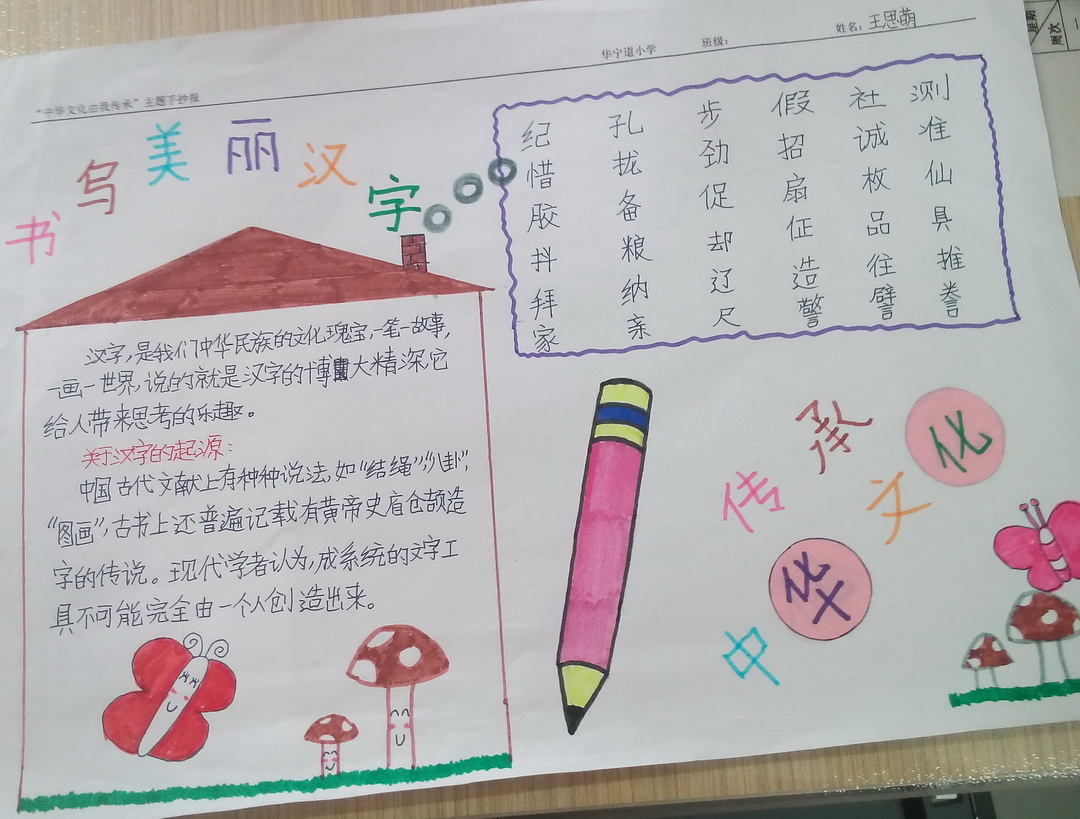 “中华文化由我传承”主题手抄报
华宁道小学 班级: 姓名:王思萌
书写美丽汉字
纪 孔 步 假 社 测
惜 拢 劲 招 诚 准
胶 备 促 扇 枚 仙
抖 粮 却 征 品 具
拜 纳 辽 造 往 推
家 亲 尺 警 譬 誊
汉字,是我们中华民族的文化瑰宝,一笔一故事,
一画一世界,说的就是汉字的博大精深,它
给人带来思考的乐趣。
关于汉字的起源:
中国古代文献上有种种说法,如“结绳”“八卦”,
“图画”,古书上还普遍记载有黄帝史官仓颉造
字的传说。现代学者认为,成系统的文字工
具不可能完全由一个人创造出来。
传承
中华文化